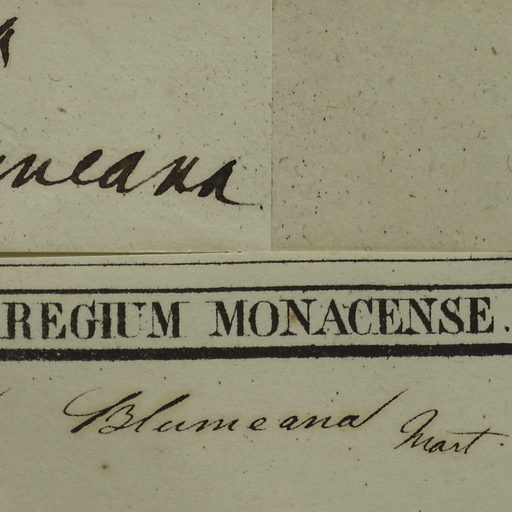 umeana
REGIUM MONACENSE.
Blumeana Mart.